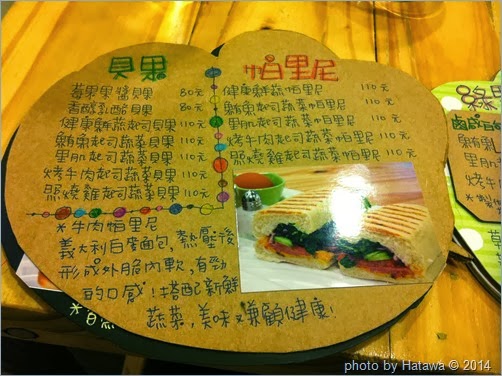 貝果
莓果果醬貝果 80元
香醇乳酪貝果 80元
健康鮮蔬起司貝果 110元
鮪魚起司蔬菜貝果 110元
里肌起司蔬菜貝果 110元
烤牛肉起司蔬菜貝果 110元
照燒雞起司蔬菜貝果 110元
帕里尼
健康鮮蔬帕里尼 110元
鮪魚起司蔬菜帕里尼 110元
里肌起司蔬菜帕里尼 110元
烤牛肉起司蔬菜帕里尼 110元
照燒雞起司蔬菜帕里尼 110元
*牛肉帕里尼
義大利白麵包,熱壓後
形成外脆內軟,有勁
的口感!搭配新鮮
蔬菜,美味又兼顧健康!
photo by Hatawa © 2014